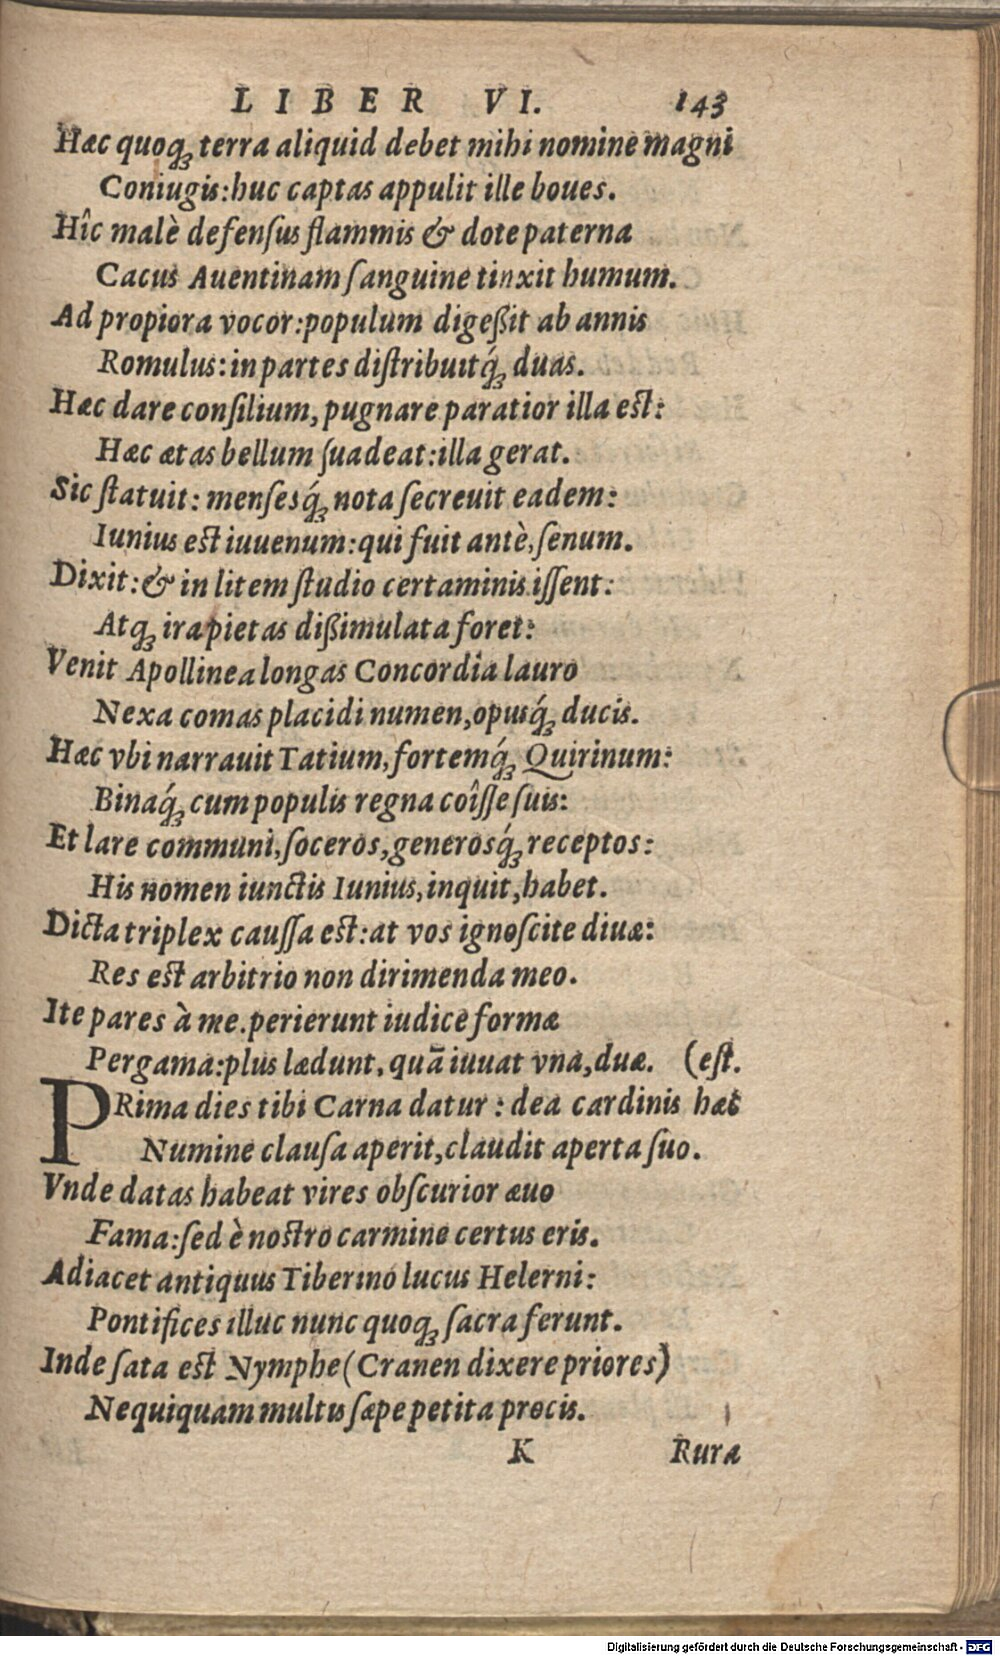 LIBER VI. 143
Hæc quoq́ꝫ terra aliquid debet mihi nomine magni
Coniugis: huc captas appulit ille boues.
Hîc malè defenſus flammis & dote paterna
Cacus Auentinam ſanguine tinxit humum.
Ad propiora vocor: populum digeßit ab annis
Romulus: in partes diſtribuitq́ꝫ duas.
Hæc dare conſilium, pugnare paratior illa eſt:
Hæc ætas bellum ſuadeat: illa gerat.
Sic ſtatuit: menſesq́ꝫ nota ſecreuit eadem:
Iunius eſt iuuenum: qui fuit antè, ſenum.
Dixit: & in litem ſtudio certaminis iſſent:
Atqꝫ ira pietas dißimulata foret:
Venit Apollinea longas Concordia lauro
Nexa comas placidi numen, opusq́ꝫ ducis.
Hæc vbi narrauit Tatium, fortemq́ꝫ Quirinum:
Binaq́ꝫ cum populis regna coîſſe ſuis:
Et lare communi, ſoceros, generosq́ꝫ receptos:
His nomen iunctis Iunius, inquit, habet.
Dicta triplex cauſſa eſt: at vos ignoſcite diuæ:
Res eſt arbitrio non dirimenda meo.
Ite pares à me. perierunt iudice formæ
Pergama: plus lædunt, quã iuuat vna, duæ. (eſt.
PRima dies tibi Carna datur: dea cardinis hæc
Numine clauſa aperit, claudit aperta ſuo.
Vnde datas habeat vires obſcurior æuo
Fama: ſed è noſtro carmine certus eris.
Adiacet antiquus Tiberino lucus Helerni:
Pontifices illuc nunc quoqꝫ ſacra ferunt.
Inde ſata eſt Nymphe (Cranen dixere priores)
Nequiquam multis ſæpe petita procis.
K Rura
Digitalisierung gefördert durch die Deutsche Forschungsgemeinschaft - DFG